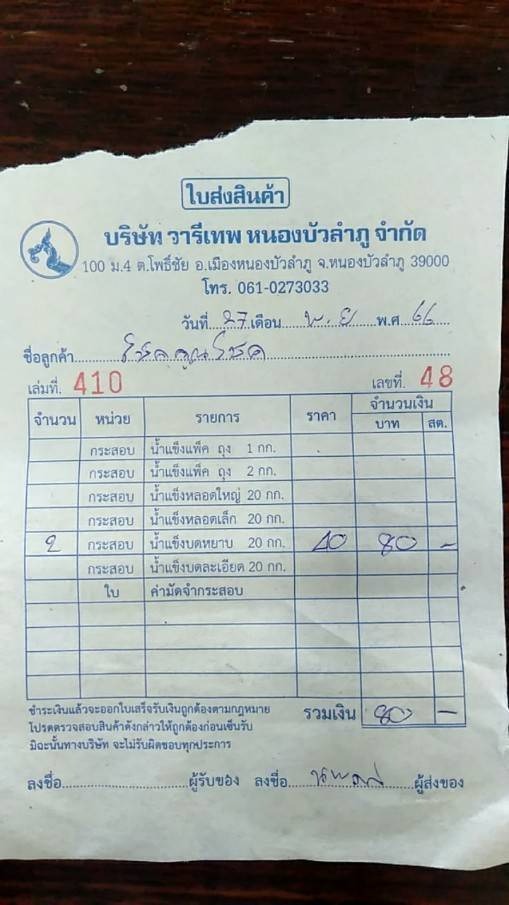 ใบส่งสินค้า
บริษัท วารีเทพ หนองบัวลำภู จำกัด
100 ม.4 ต.โพธิ์ชัย อ.เมืองหนองบัวลำภู จ.หนองบัวลำภู 39000
โทร. 061-0273033
วันที่ 27 เดือน พ.ย พ.ศ 66
ชื่อลูกค้า โชคคูณโชค
เล่มที่. 410 เลขที่. 48
จำนวน หน่วย รายการ ราคา จำนวนเงิน
บาท สต.
กระสอบ น้ำแข็งแพ็ค ถุง 1 กก.
กระสอบ น้ำแข็งแพ็ค ถุง 2 กก.
กระสอบ น้ำแข็งหลอดใหญ่ 20 กก.
กระสอบ น้ำแข็งหลอดเล็ก 20 กก.
2 กระสอบ น้ำแข็งบดหยาบ 20 กก. 40 80 -
กระสอบ น้ำแข็งบดละเอียด 20 กก.
ใบ ค่ามัดจำกระสอบ
ชำระเงินแล้วจะออกใบเสร็จรับเงินถูกต้องตามกฎหมาย รวมเงิน 80 -
โปรดตรวจสอบสินค้าดังกล่าวให้ถูกต้องก่อนเซ็นรับ
มิฉะนั้นทางบริษัท จะไม่รับผิดชอบทุกประการ
ลงชื่อ ผู้รับของ ลงชื่อ ผู้ส่งของ